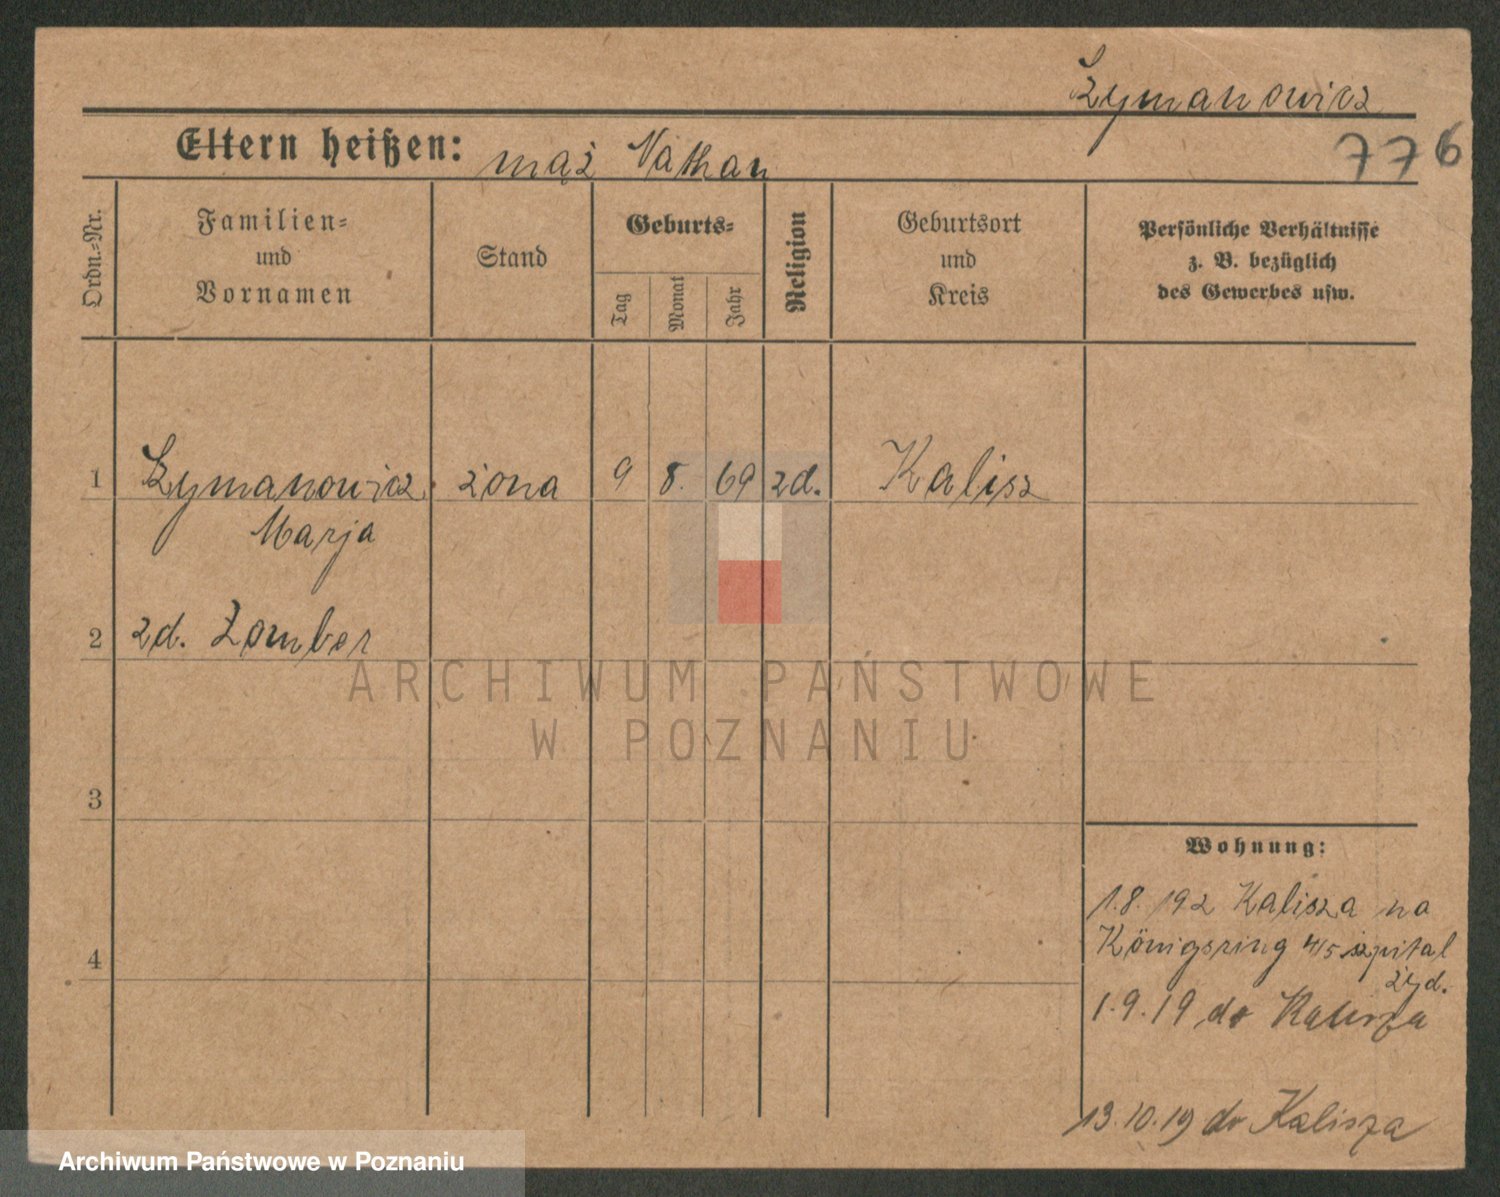 Szymanowicz
Eltern heißen: mąż Nathan
776
Ordn.-Nr.
Familien-
und
Vornamen
Stand
Geburts-
Tag
Monat
Jahr
Religion
Geburtsort
und
Kreis
Persönliche Verhältnisse
z. B. bezüglich
des Gewerbes usw.
1 Szymanowicz żona 9 8. 69 żd. Kalisz
Marja
2 żd. Zomber
3
4
Wohnung:
1.8.19 z Kalisza na
Königsring 4/5 szpital
żyd.
1.9.19 do Kalisza
13.10.19 do Kalisza
ARCHIWUM PAŃSTWOWE
W POZNANIU
Archiwum Państwowe w Poznaniu